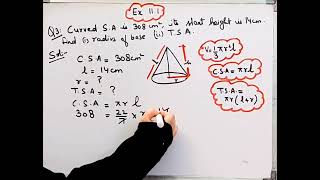 Ex 11.1
Q3: Curved S.A is 308 cm², its slant height is 14 cm.
find (i) radius of base (ii) T.S.A.
Sol:-
C.S.A = 308cm²
l = 14cm
r = ?
T.S.A = ?
C.S.A = πrl
308 = 22/7 × r × 14
V = 1/3 πr²l
C.S.A = πrl
T.S.A. = πr(l+r)